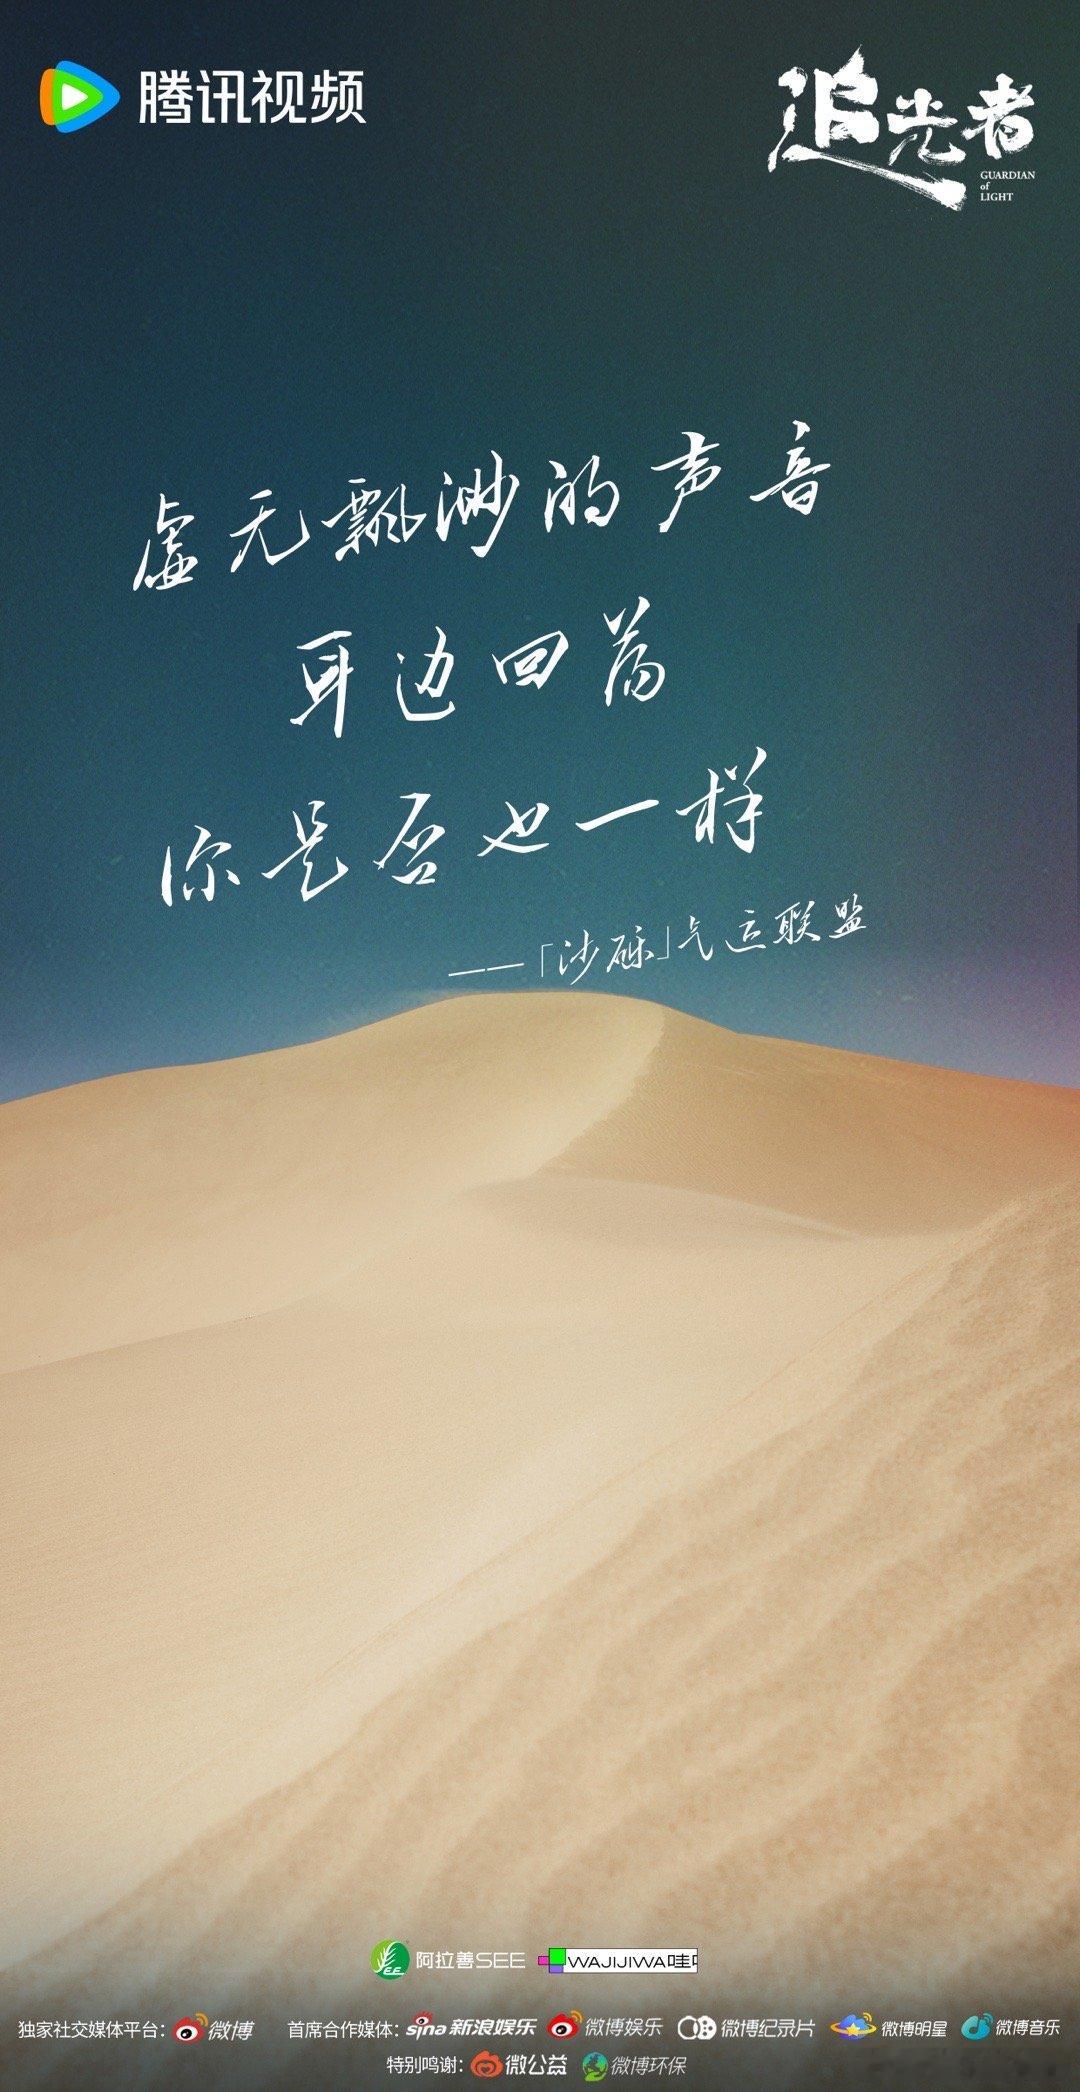 腾讯视频
追光者
GUARDIAN
of
LIGHT
虚无飘渺的声音
耳边回荡
你是否也一样
——「沙砾」气运联盟
阿拉善SEE WAJIJIWA哇
独家社交媒体平台：微博 首席合作媒体：sina新浪娱乐 微博娱乐 微博纪录片 微博明星 微博音乐
特别鸣谢：微公益 微博环保